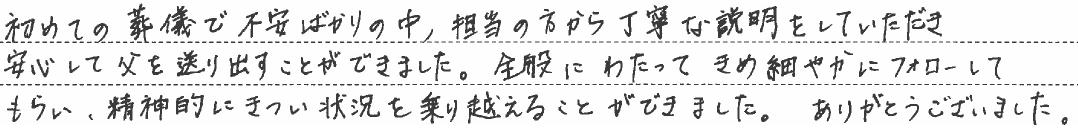 初めての葬儀で不安ばかりの中，担当の方から丁寧な説明をしていただき
安心して父を送り出すことができました。全般にわたってきめ細やかにフォローして
もらい、精神的にきつい状況を乗り越えることができました。 ありがとうございました。